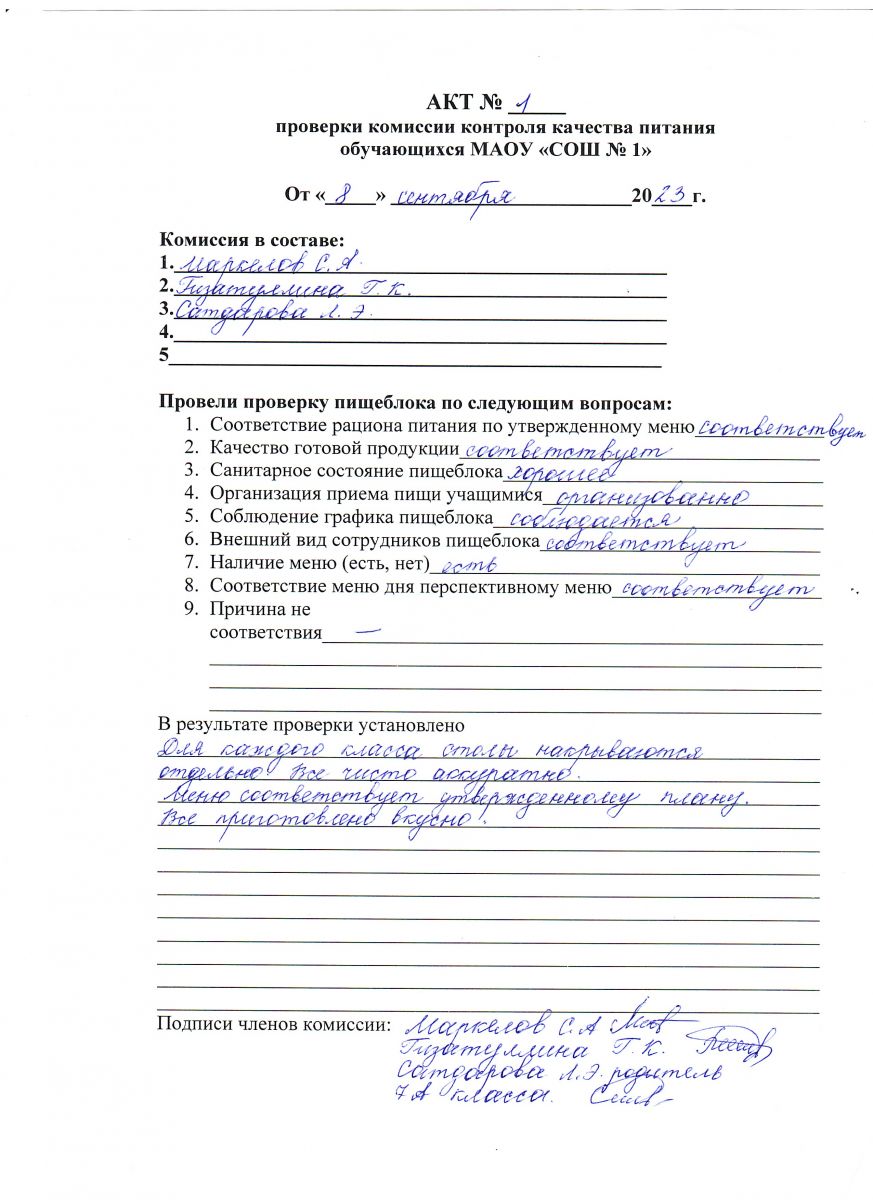 АКТ № 1
проверки комиссии контроля качества питания
обучающихся МАОУ «СОШ № 1»
От « 8 » сентября 2023 г.
Комиссия в составе:
1. Маркелов С.А.
2. Гизатуллина Г.К.
3. Сатдарова Л.Э.
4.
5
Провели проверку пищеблока по следующим вопросам:
1. Соответствие рациона питания по утвержденному меню соответствует
2. Качество готовой продукции соответствует
3. Санитарное состояние пищеблока хорошее
4. Организация приема пищи учащимися организованно
5. Соблюдение графика пищеблока соблюдается
6. Внешний вид сотрудников пищеблока соответствует
7. Наличие меню (есть, нет) есть
8. Соответствие меню дня перспективному меню соответствует
9. Причина не
соответствия —
В результате проверки установлено
Для каждого класса столы накрываются
отдельно. Все чисто аккуратно.
Меню соответствует утвержденному плану.
Все приготовлено вкусно.
Подписи членов комиссии: Маркелов С.А
Гизатуллина Г.К.
Сатдарова Л.Э. родитель
7А класса.